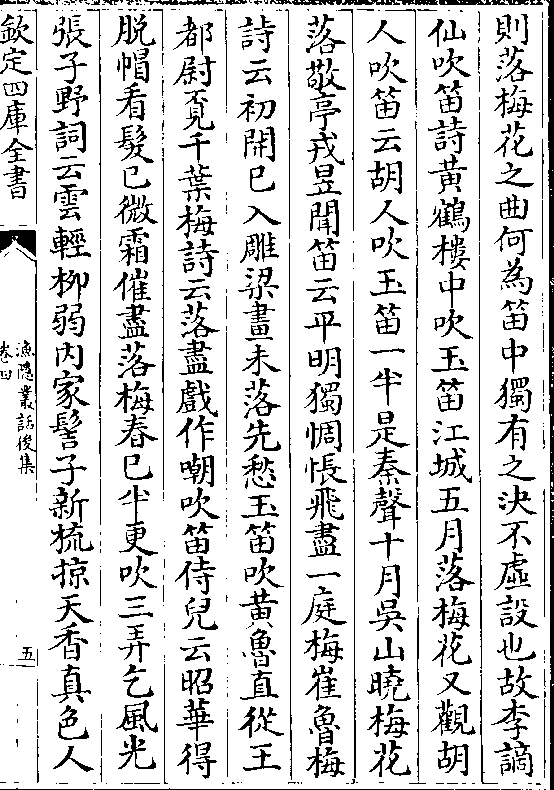 則落梅花之曲何為笛中獨有之決不虛設也故李謫
仙吹笛詩黃鶴樓中吹玉笛江城五月落梅花又觀胡
人吹笛云胡人吹玉笛一半是秦聲十月吳山曉梅花
落敬亭戎昱聞笛云平明獨惆悵飛盡一庭梅崔魯梅
詩云初開已入雕梁畫未落先愁玉笛吹黃魯直從王
都尉覓千葉梅詩云落盡戲作嘲吹笛侍兒云昭華得
脱帽看髮已微霜催盡落梅春已半更吹三弄乞風光
張子野詞云雲輕柳弱内家髻子新梳掠天香真色人
欽定四庫全書
漁隱叢話後集
卷四
五